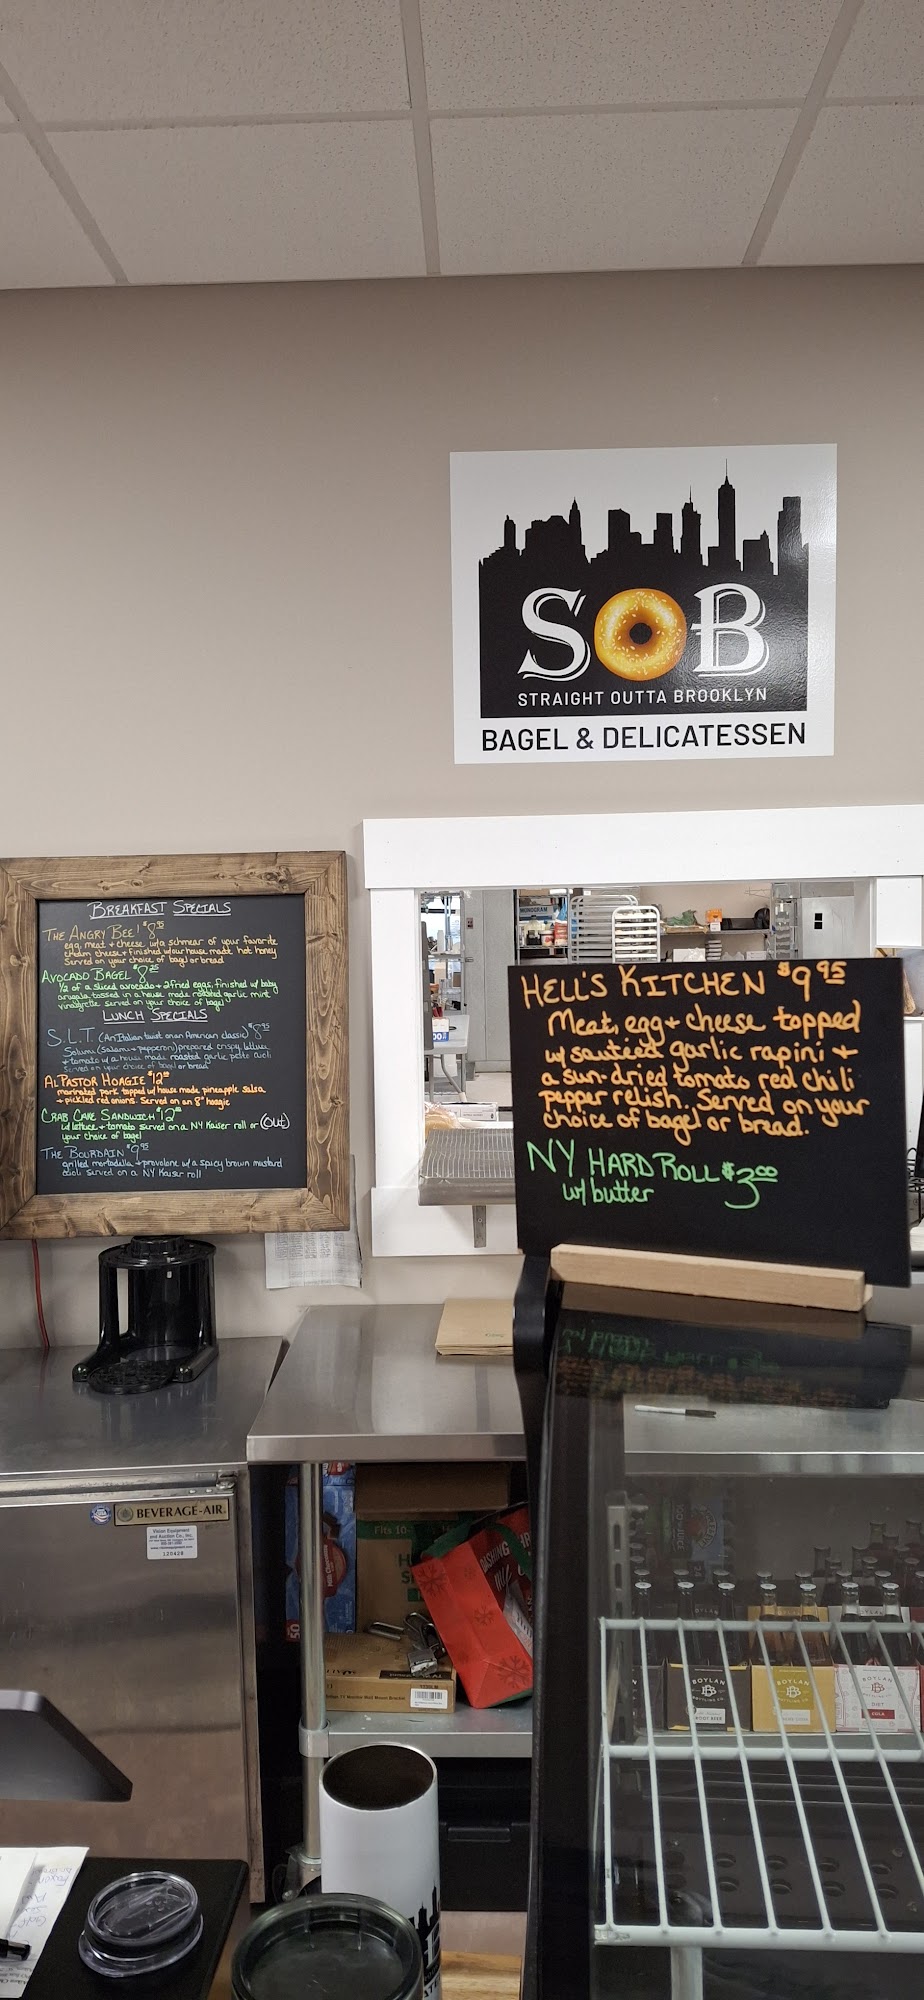 SOB
STRAIGHT OUTTA BROOKLYN
BAGEL & DELICATESSEN
BREAKFAST SPECIALS
THE ANGRY BEE! $8.95
egg, meat + cheese w/a schmear of your favorite
cream cheese + finished w/our house made hot honey
Served on your choice of bagel or bread
AVOCADO BAGEL
1/2 of a sliced avocado + 2 fried eggs, finished w/ baby
arugula tossed in a house made roasted garlic mint
vinaigrette. served on your choice of bagel
LUNCH SPECIALS
S.L.T. (An Italian twist on an American classic) $8.95
Salumi (Salami + pepperoni) prepared crispy, lettuce
+ tomato w/ a house made roasted garlic pesto aioli
Served on your choice of bagel or bread
AL PASTOR HOAGIE $12
marinated pork topped w/ house made pineapple salsa
+ pickled red onions. Served on an 8" hoagie
CRAB CAKE SANDWICH $12
w/ lettuce + tomato served on a NY Kaiser roll or (OUT)
your choice of bagel
THE BOURDAIN $9.95
grilled mortadella + provolone w/ a spicy brown mustard
aioli served on a NY Kaiser roll
HELL'S KITCHEN $9.95
Meat, egg + cheese topped
w/ sauteed garlic rapini +
a sun-dried tomato red chili
pepper relish. Served on your
choice of bagel or bread.
NY HARD ROLL $3.00
w/ butter
BEVERAGE-AIR
Vision Equipment
and Auction Co., Inc.
120428
Fits 10-
DASHING
BOYLAN
BOTTLING CO.
ROOT BEER
BOYLAN
BOTTLING CO.
BOYLAN
BOTTLING CO.
DIET
COLA